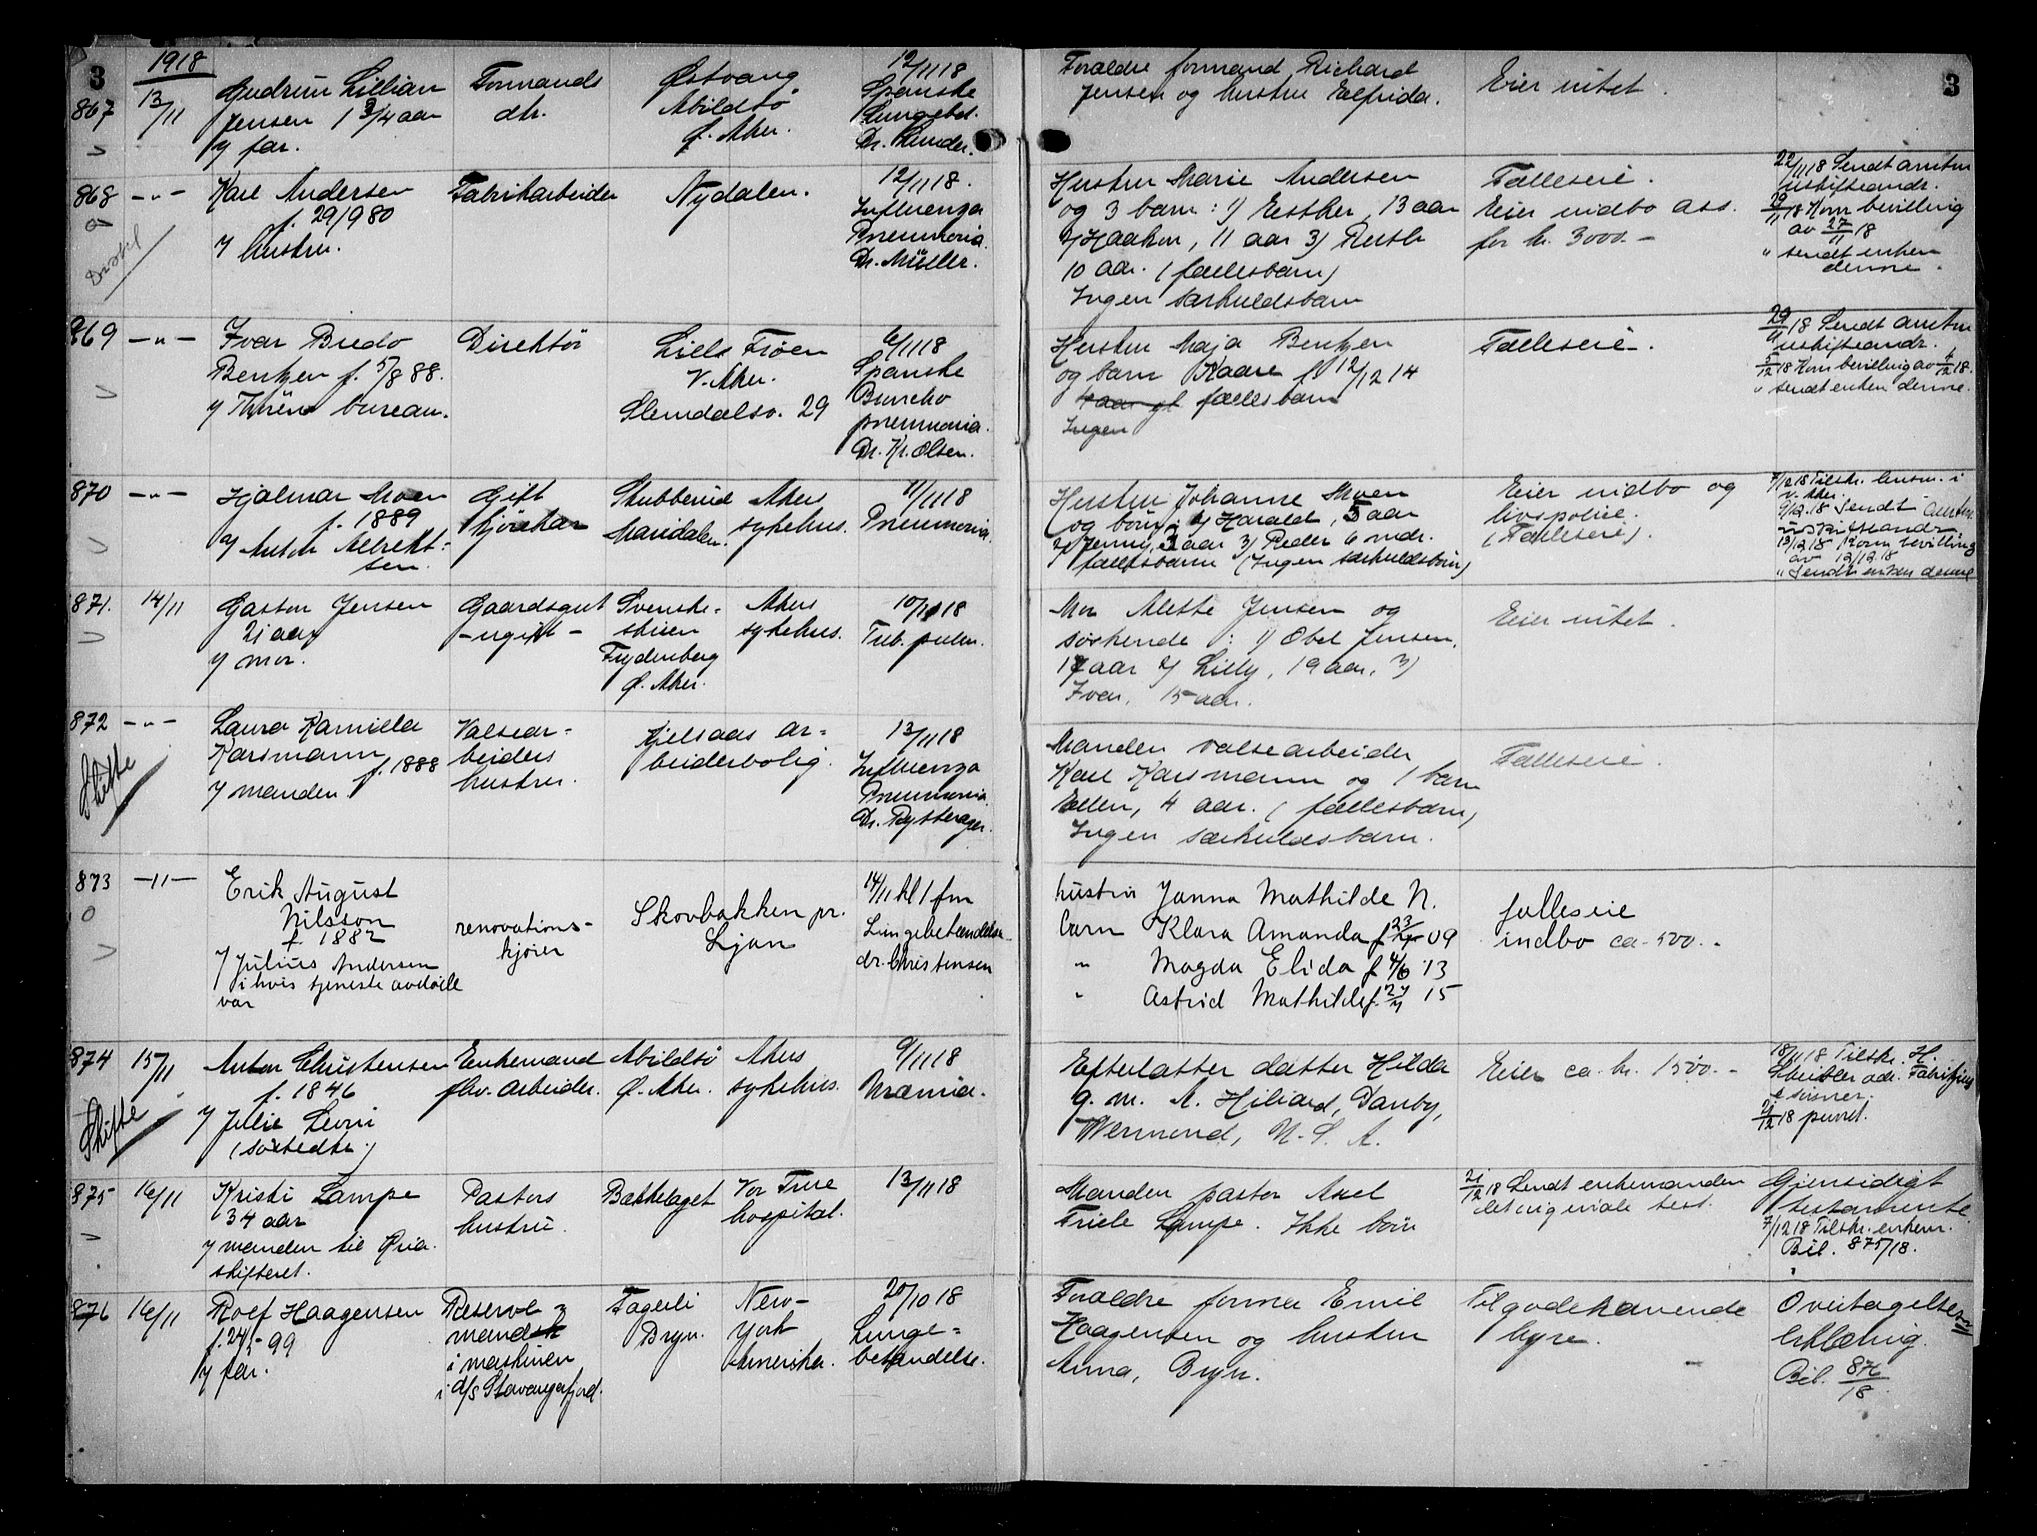 3
1918
867
13/11
Gudrun Lillian
Jensen 1 3/4 aar
v/ far.
Formands
dtr.
Østvang
Abildsø
Ø. Aker.
12/11 18
Spanske
Lungebet.
Foreldre formand Richard
Jensen og hustru Elfrida.
Eier intet.
3
868
-"-
Karl Andersen
f. 29/9 80
v/ hustru.
Fabrikarbeider
Nydalen.
12/11 18.
Influenza
Pneumonia.
Dr. Müller.
Hustru Marie Andersen
og 3 barn: 1) Esther, 13 aar
2) Haakon, 11 aar 3) Ruth
10 aar. (fællesbarn)
Ingen særkuldsbarn
Fælleseie.
Eier indbo ass.
for kr. 3000.-
22/11 18 Sendt amtm
uskifteandr.
29/11 18 Kom bevilling
av 27/11 18
" sendt enken
denne.
869
-"-
Ivar Bredo
Bentzen f. 5/8 88.
v/ bureau.
Direktør
Lille Frøen
V. Aker.
Slemdalsv. 29
6/11 18
Spanske
Broncho
pneumonia.
Dr. Kr. Olsen.
Hustru Maja Bentzen
og barn Kaare f. 12/12 14
4 aar gl. fællesbarn
Ingen
Fælleseie.
29/11 18 Sendt amtm
uskifteandr.
5/12 18 Kom bevilling av 4/12 18.
" sendt enken denne.
870
-"-
Hjalmar Moen
f. 1889
v/ Anton Albrekt-
sen.
Gift
kjørekar
Skubberud
Maridalen.
Akers
sykehus.
11/11 18
Pneumonia.
Hustru Johanne Moen
og børn: 1) Harald, 5 aar
2) Jenny, 3 aar 3) Peder 6 mdr.
fællesbarn (Ingen særkuldsbørn)
Eier indbo og
livspolise.
(Fælleseie).
7/12 18 Tilskr. lensm. i
V. Aker.
9/12 18 Sendt amtm
uskifteandr.
13/12 18 Kom bevilling
av 12/12 18
" Sendt enken denne
871.
14/11
Gaston Jensen
21 aar
v/ mor.
Gaardsgut
-ugift-
Svenske-
skuen
Frydenberg
Ø. Aker.
Akers
sykehus.
10/11 18
Tub. pulm.
Mor Alette Jensen og
søskende: 1) Obel Jensen,
17 aar 2) Lilly, 19 aar, 3)
Ivar, 15 aar.
Eier intet.
872
-"-
Skifte
Laura Kamilla
Karsmann
f. 1888
v/ manden.
Valsear-
beiders
hustru.
Kjelsaas ar-
beiderbolig.
13/11 18
Influenza
Pneumonia.
Manden valsearbeider
Karl Karsmann og 1 barn
Ellen, 4 aar. (fællesbarn)
Ingen særkuldsbarn.
Fælleseie.
873
-11-
Erik August
Nilsson
f. 1882
v/ Julius Andersen
i hvis tjeneste avdøde
var
renovations-
kjører
Skovbakken pr.
Ljan
14/11 kl 1 fm
Lungebetændelse
dr. Christensen
hustru Janna Mathilde N.
barn Klara Amanda f 09
" Magda Elida f 4/6 13
" Astrid Mathilde f. 15
fælleseie
indbo ca. 500.-
874
15/11
Skifte
Anton Christensen
f. 1846
v/ Julie Levni
Enkemand
fhv. arbeider.
Abildsø
Ø. Aker.
Akers
sykehus.
9/11 18
Uræmia.
Efterlatter datter Hilda
g. m. A. Hiliard, Danby,
Wermond, U. S. A.
Eier ca. kr. 1500.-
18/11 18 Tilskr. H.
875
16/11
Kristi Lampe
34 aar
v/ manden til Kria.
skifteret.
Pastors
hustru.
Bækkelaget
Vor Frue
hospital.
13/11 18
Manden pastor Axel
Friele Lampe. Ikke børn
21/12 18 Sendt enkemanden
det originale test.
Gjensidigt
testamente.
7/12 18 Tilskr. enkem.
Bil. 875/18.
876
16/11
Rolf Haagensen
f. 24/5 99
v/ far.
Reserve
mand
i maskinen
i d/s Stavangerfjord.
Fagerli
Bryn.
New-
York
Amerika.
20/10 18
Lunge-
betændelse.
Foreldre former Emil
Haagensen og hustru
Anna, Bryn.
Tilgodehavende
hyre.
Overtagelses
erklæring.
Bil. 876/18.